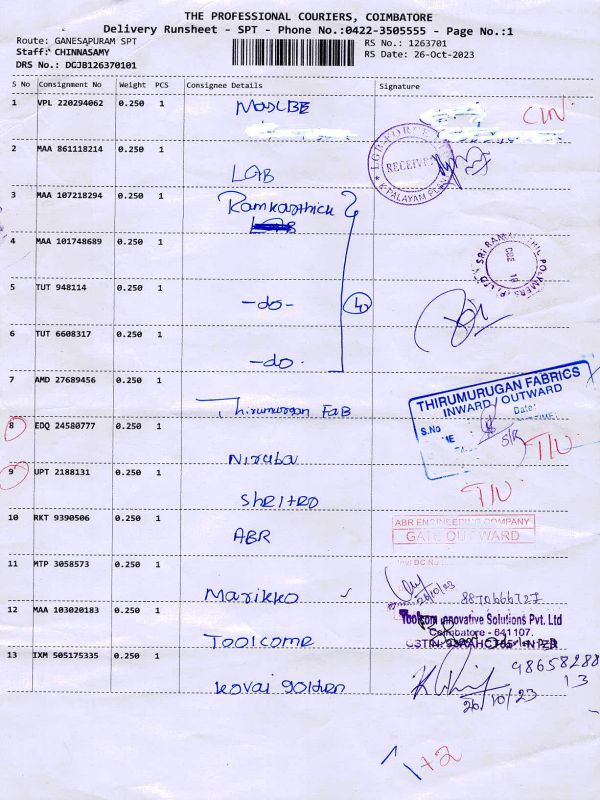 THE PROFESSIONAL COURIERS, COIMBATORE
Delivery Runsheet - SPT - Phone No.:0422-3505555 - Page No.:1
Route: GANESAPURAM SPT
RS No.: 1263701
Staff: CHINNASAMY
RS Date: 26-Oct-2023
DRS No.: DGJB126370101
S No Consignment No Weight PCS Consignee Details Signature
1 VPL 220294062 0.250 1
2 MAA 861118214 0.250 1
LGB
LGB FORGE
RECEIVED
K PALAYAM
3 MAA 107218294 0.250 1 Ramkarthick
4 MAA 101748689 0.250 1
5 TUT 948114 0.250 1
-do-
4
6 TUT 6608317 0.250 1
-do-
7 AMD 27689456 0.250 1
Thirumurgan FaB
THIRUMURUGAN FABRICS
INWARD / OUTWARD
S.No
Date:
8 EDQ 24580777 0.250 1
Niruba
T/U
9 UPT 2188131 0.250 1
T/U
10 RKT 9390506 0.250 1
ABR
ABR ENGINEERING COMPANY
GATE OUTWARD
11 MTP 3058573 0.250 1
Marikko
26/10/23
12 MAA 103020183 0.250 1
Toolcome
Innovative Solutions Pvt. Ltd
Coimbatore - 641107.
13 IXM 505175335 0.250 1
kovai golden
26/10/23
1+2